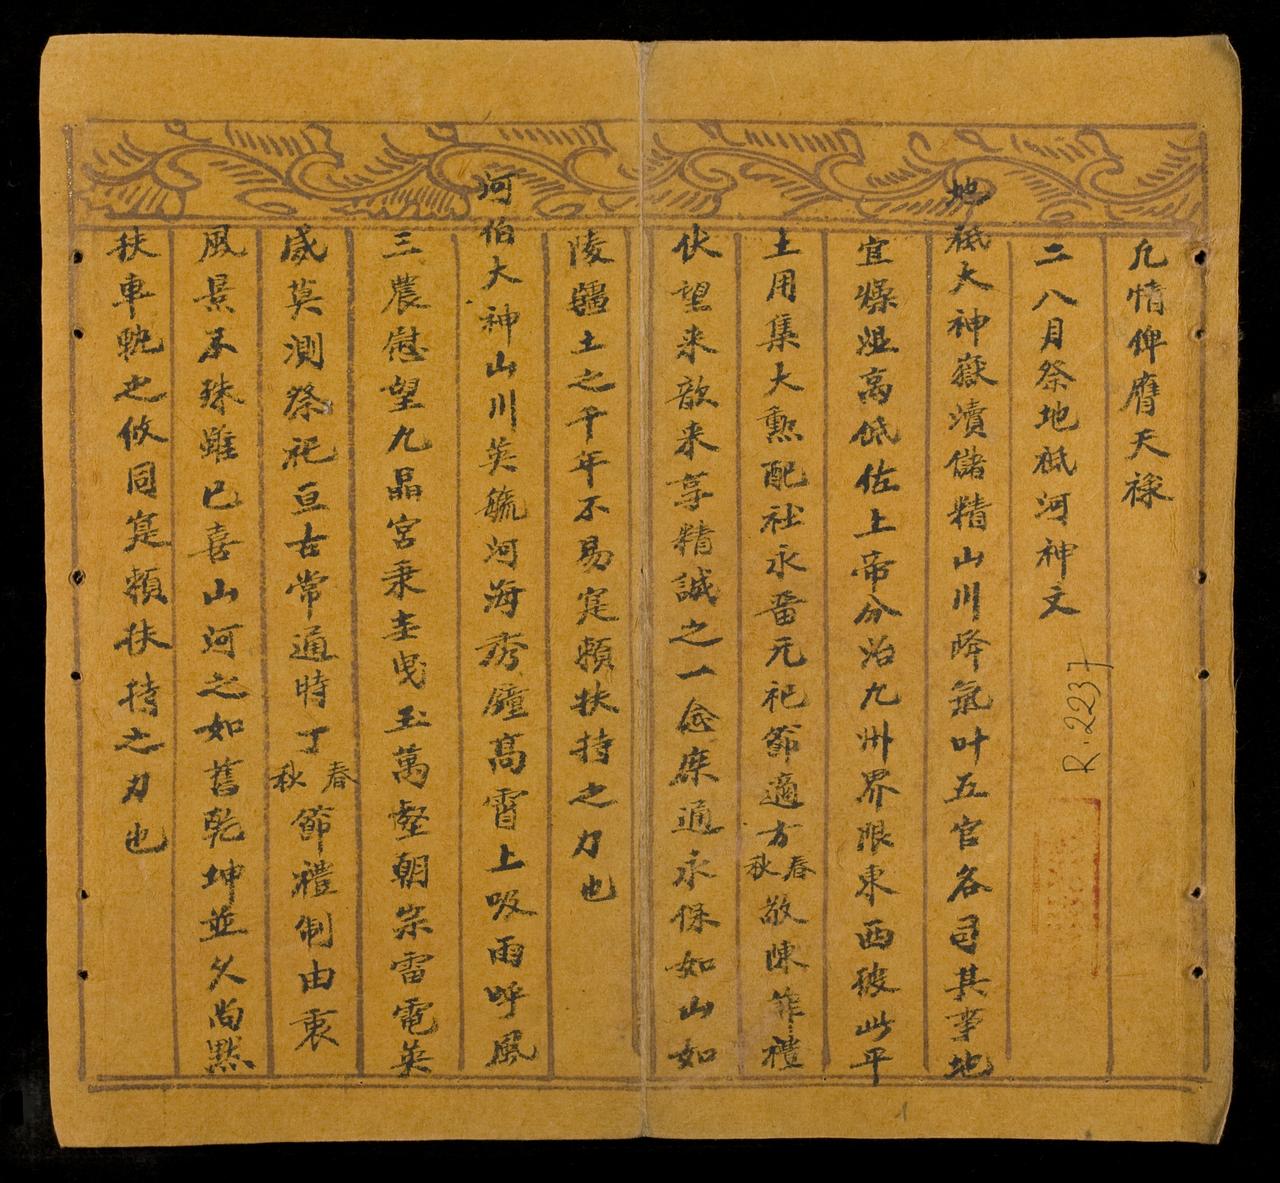 凢情俾膺天祿
二八月祭地祇河神文
地祇大神嶽瀆儲精山川降氣叶五官各司其事地
宜燥濕高低佐上帝分治九州界限東西彼此平
土用集大勲配社永畱元祀節適方春秋敬陳笮禮
伏望来歆来享精誠之一念庶通永保如山如
陵疆土之千年不易寔頼扶持之力也
河伯大神山川英毓河海秀鍾高霄上吸雨呼風
三農慰望九晶宮秉圭曵玉萬壑朝宗雷電英
威莫測祭祀亘古常通時丁春秋節禮制由衷
風景不殊雖已喜山河之如舊乾坤並久尚黙
扶車軌之攸同寔頼扶持之力也
R.2237